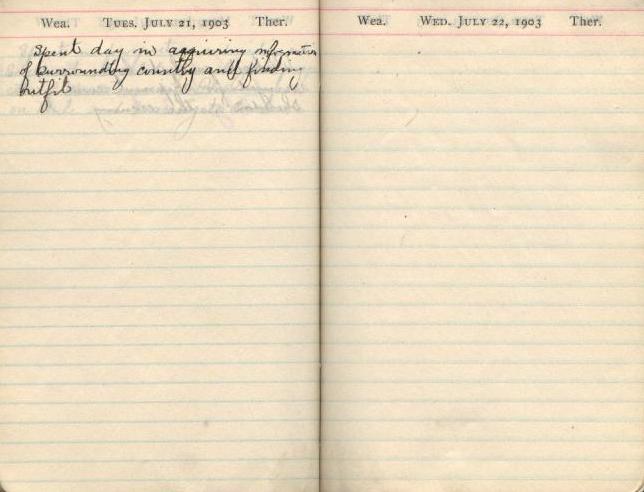 Wea. TUES. JULY 21, 1903 Ther.
Spent day in acquiring information
of surrounding country and finding
outfit
Wea. WED. JULY 22, 1903 Ther.